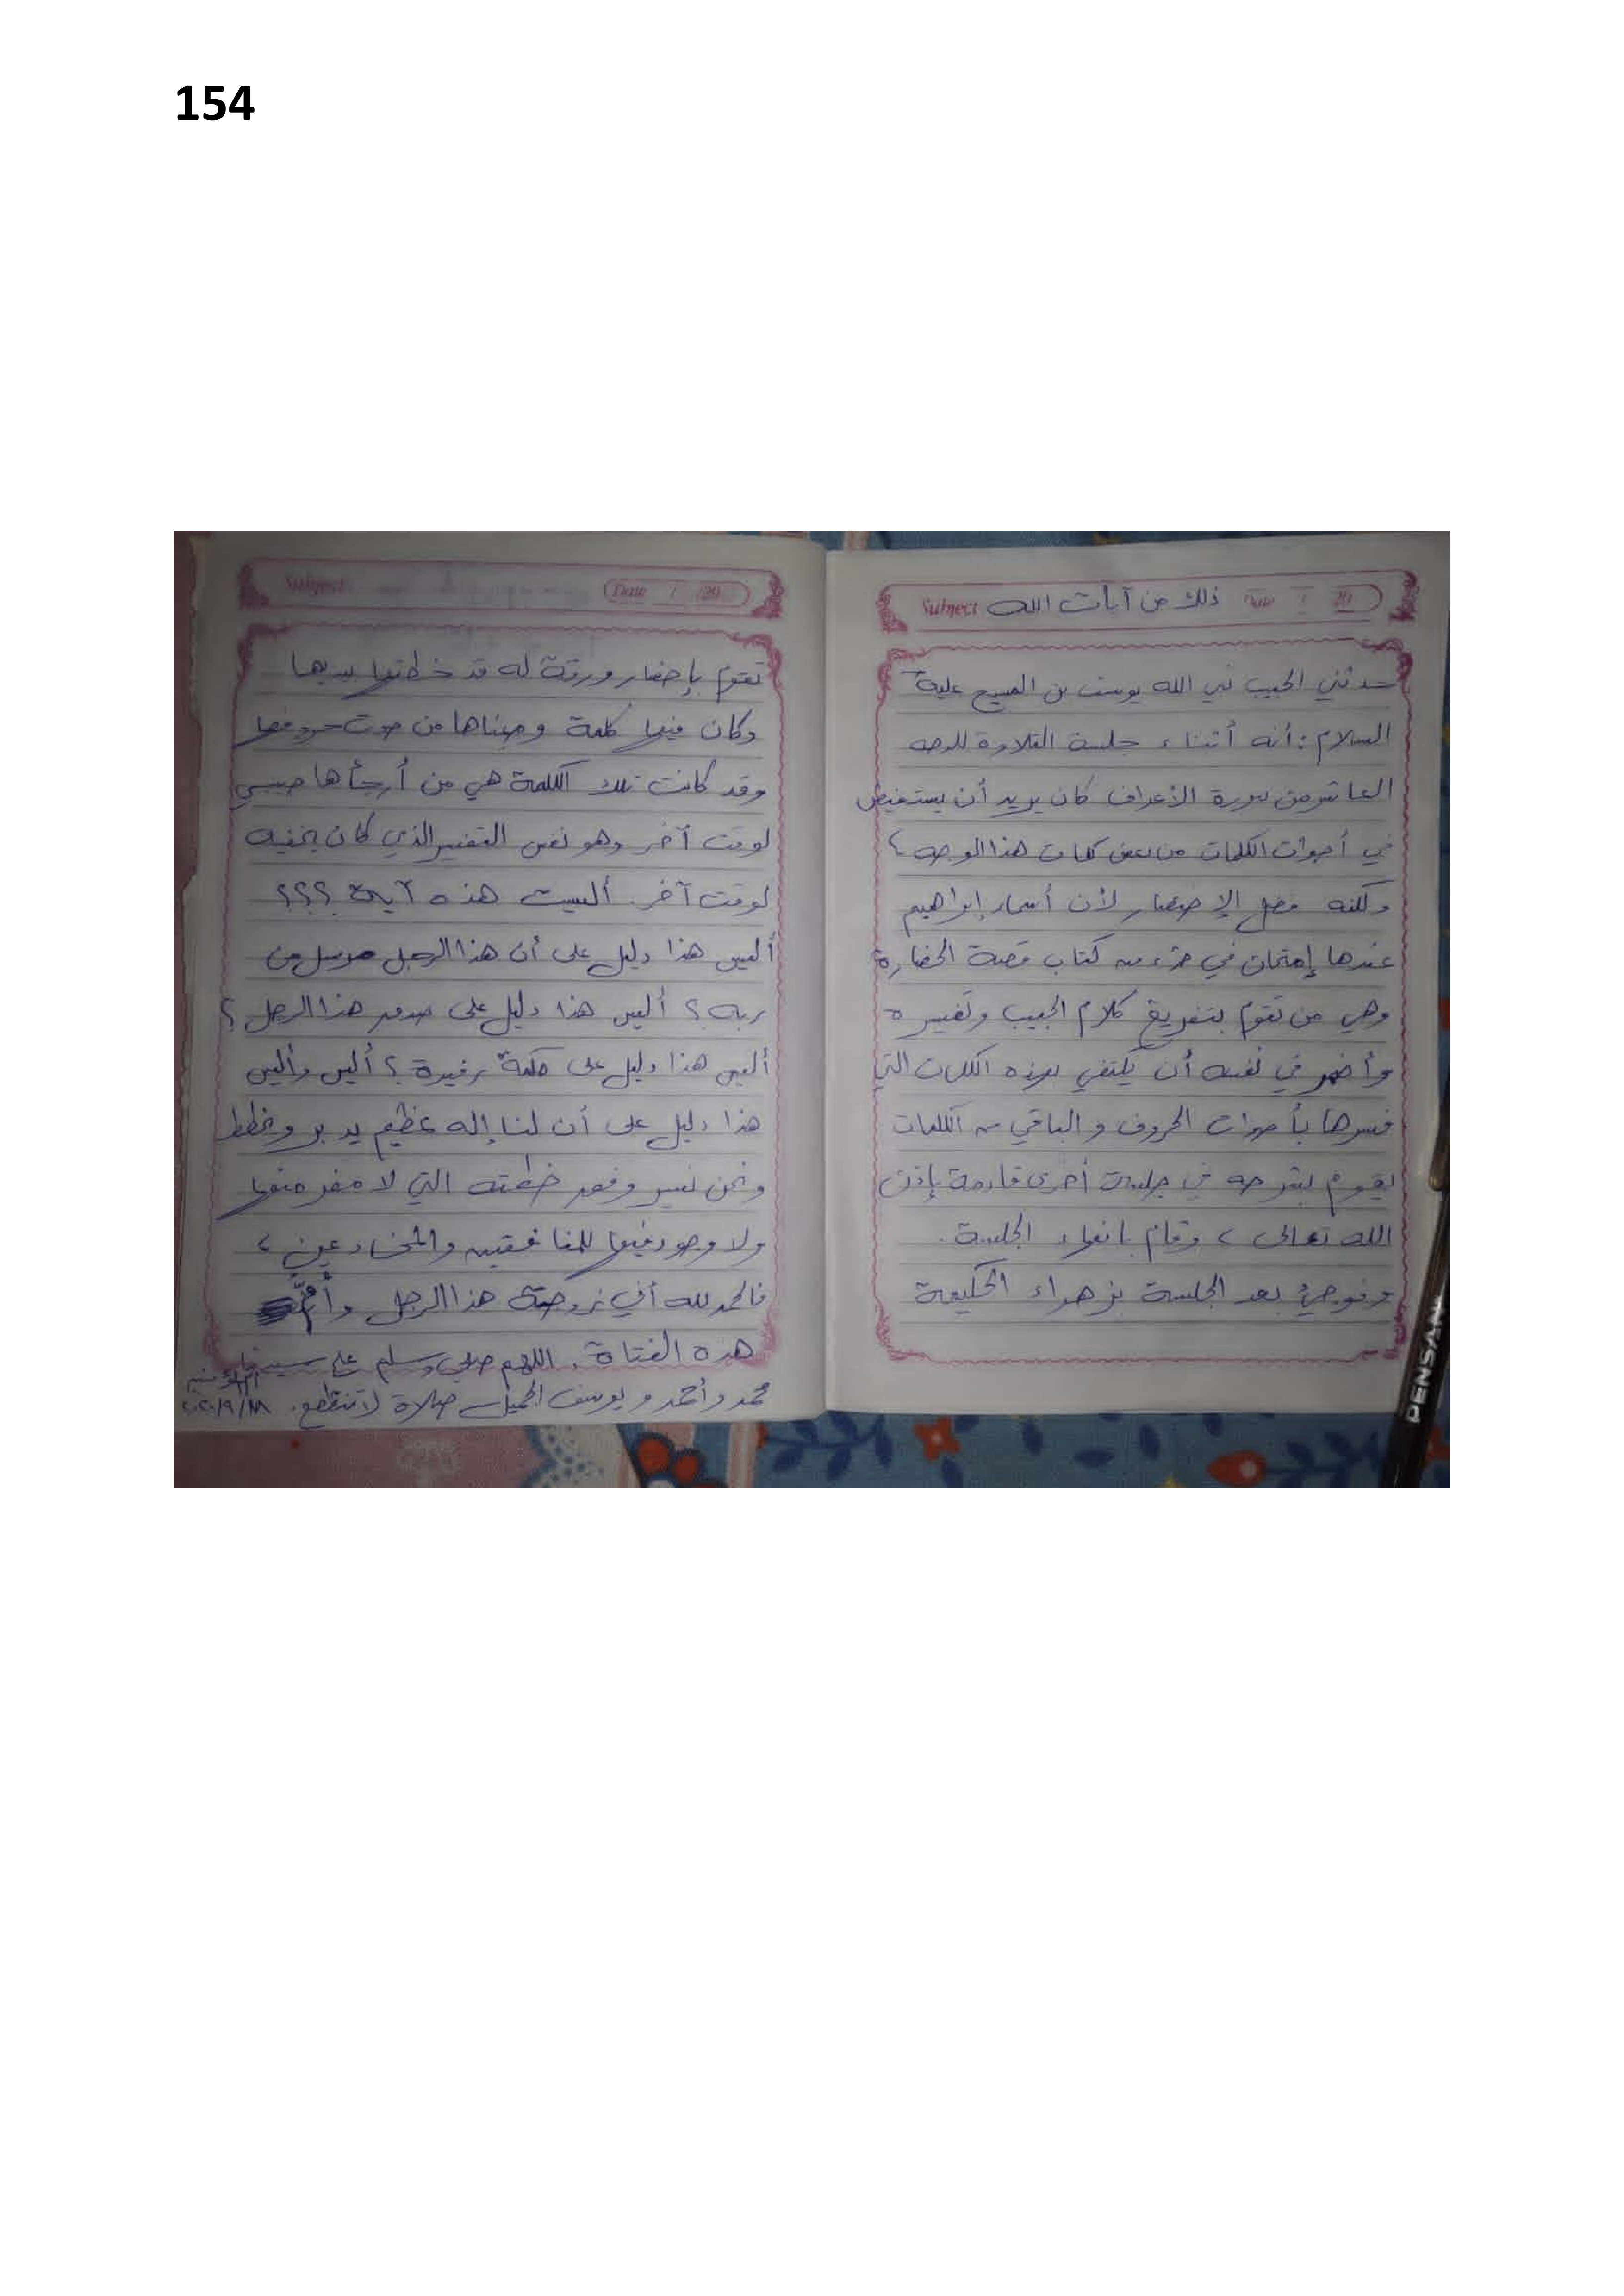 154
Subject ذلك من آيات الله Date / 20
حدثني الحبيب نبي الله يوسف بن المسيح عليه
السلام : أنه أثناء جلسة التلاوة للوجه
العاشر من سورة الأعراف كان يريد أن يستفيض
في أصوات الكلمات من بعض كلمات هذا الوجه ،
ولكنه فضل الإختصار لأن أسمار إبراهيم
عندها إمتحان في جزء من كتاب قصة الحضارة
وهي من تقوم بتفريغ كلام الحبيب وتفسيره
وأضمر في نفسه أن يكتفي بهذه الكلمات التي
فسرها بأصوات الحروف والباقي من الكلمات
يقوم بشرحه في جلسة أخرى قادمة بإذن
الله تعالى ، وقام بانهاء الجلسة .
وفوجئ بعد الجلسة بزهراء الحكيمة
Subject Date / 20
تقوم بإحضار ورقة له قد خطتها بيديها
وكان فيها كلمة ومعناها من صوت حروفها
وقد كانت تلك الكلمة هي من أرجأها حبيبي
لوقت آخر وهو نفس التفسير الذي كان يخفيه
لوقت آخر . أليست هذه آية ؟؟؟
أليس هذا دليل على أن هذا الرجل مرسل من
ربه ؟ أليس هذا دليل على صدق هذا الرجل ؟
أليس هذا دليل على حكمة رفيدة ؟ أليس وأليس
هذا دليل على أن لنا إله عظيم يدبر ويخطط
ونحن نسير وفق خطته التي لا مفر منها
ولا وجود فيها للمنافقين والمخادعين ،
فالحمد لله أني زوجة هذا الرجل وأمُّ
هذه الفتاة . اللهم صلي وسلم على سيدنا
محمد وأحمد ويوسف الجميل صلاة لا تنقطع .
أم المؤمنين
PENSAN